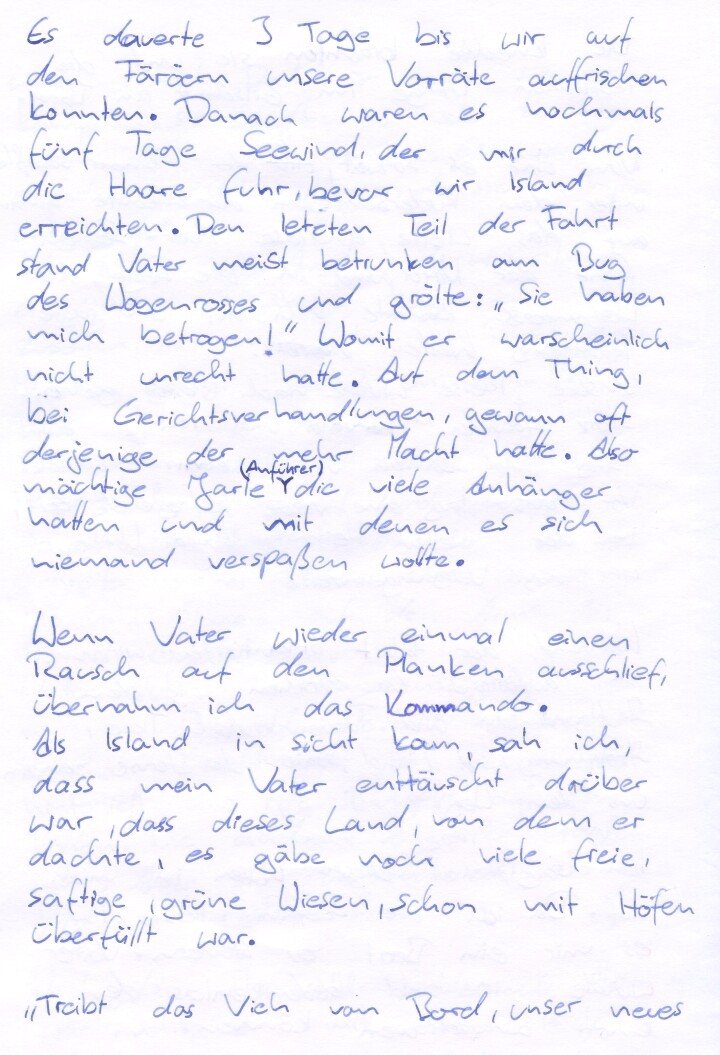 Es dauerte 3 Tage bis wir auf
den Färöern unsere Vorräte auffrischen
konnten. Danach waren es nochmals
fünf Tage Seewind, der mir durch
die Haare fuhr, bevor wir Island
erreichten. Den letzten Teil der Fahrt
stand Vater meist betrunken am Bug
des Wogenrosses und grölte: „Sie haben
mich betrogen!“ Womit er warscheinlich
nicht unrecht hatte. Auf dem Thing,
bei Gerichtsverhandlungen, gewann oft
derjenige der mehr Macht hatte. Also
mächtige Jarle (Anführer) die viele Anhänger
hatten und mit denen es sich
niemand verspaßen wollte.
Wenn Vater wieder einmal einen
Rausch auf den Planken ausschlief,
übernahm ich das Kommando.
Als Island in sicht kam, sah ich,
dass mein Vater enttäuscht darüber
war, dass dieses Land, von dem er
dachte, es gäbe noch viele freie,
saftige, grüne Wiesen, schon mit Höfen
überfüllt war.
„Treibt das Vieh von Bord, unser neues